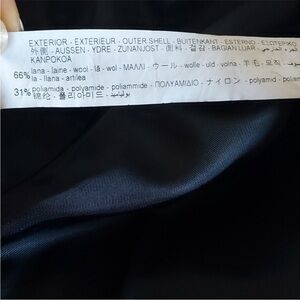 EXTERIOR - EXTÉRIEUR - OUTER SHELL - BUITENKANT - ESTERNO - ΕΞΩΤΕΡΙΚΟ
外側 - AUSSEN - YDRE - ZUNANJOST - 面料 - 겉감 - BAGIAN LUAR -
KANPOKOA
66% lana - laine - wool - lã - wol - ΜΑΛΛΙ - ウール - wolle - uld - volna - 羊毛 - 모직
la - llana - artilea
31% poliamida - polyamide - poliammide - ΠΟΛΥΑΜΙΔΙΟ - ナイロン - polyamid -
锦纶 - 폴리아미드 - بوليميد - polyamide